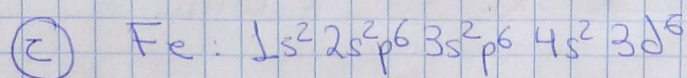 c Fe: 1s² 2s²p⁶ 3s²p⁶ 4s² 3d⁶